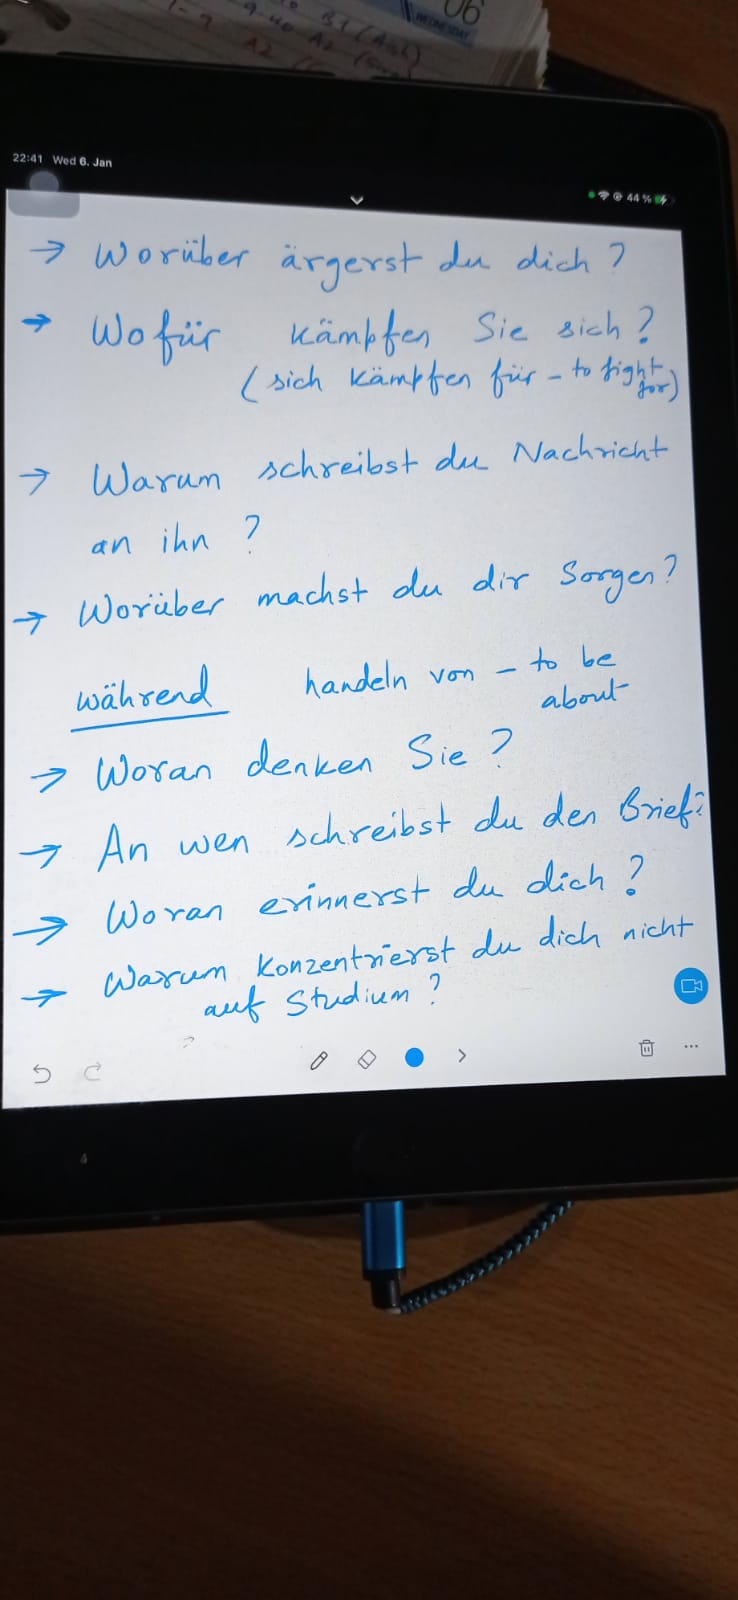 06
WEDNESDAY
B1 (A
9-40 A2
1-9
A2
22:41 Wed 6. Jan
44 %
→ Worüber ärgerst du dich ?
→ Wofür kämpfen Sie sich ?
( sich kämpfen für – to fight for)
→ Warum schreibst du Nachricht
an ihn ?
→ Worüber machst du dir Sorgen ?
während handeln von – to be
about
→ Woran denken Sie ?
→ An wen schreibst du den Brief?
→ Woran erinnerst du dich ?
→ Warum konzentrierst du dich nicht
auf Studium ?